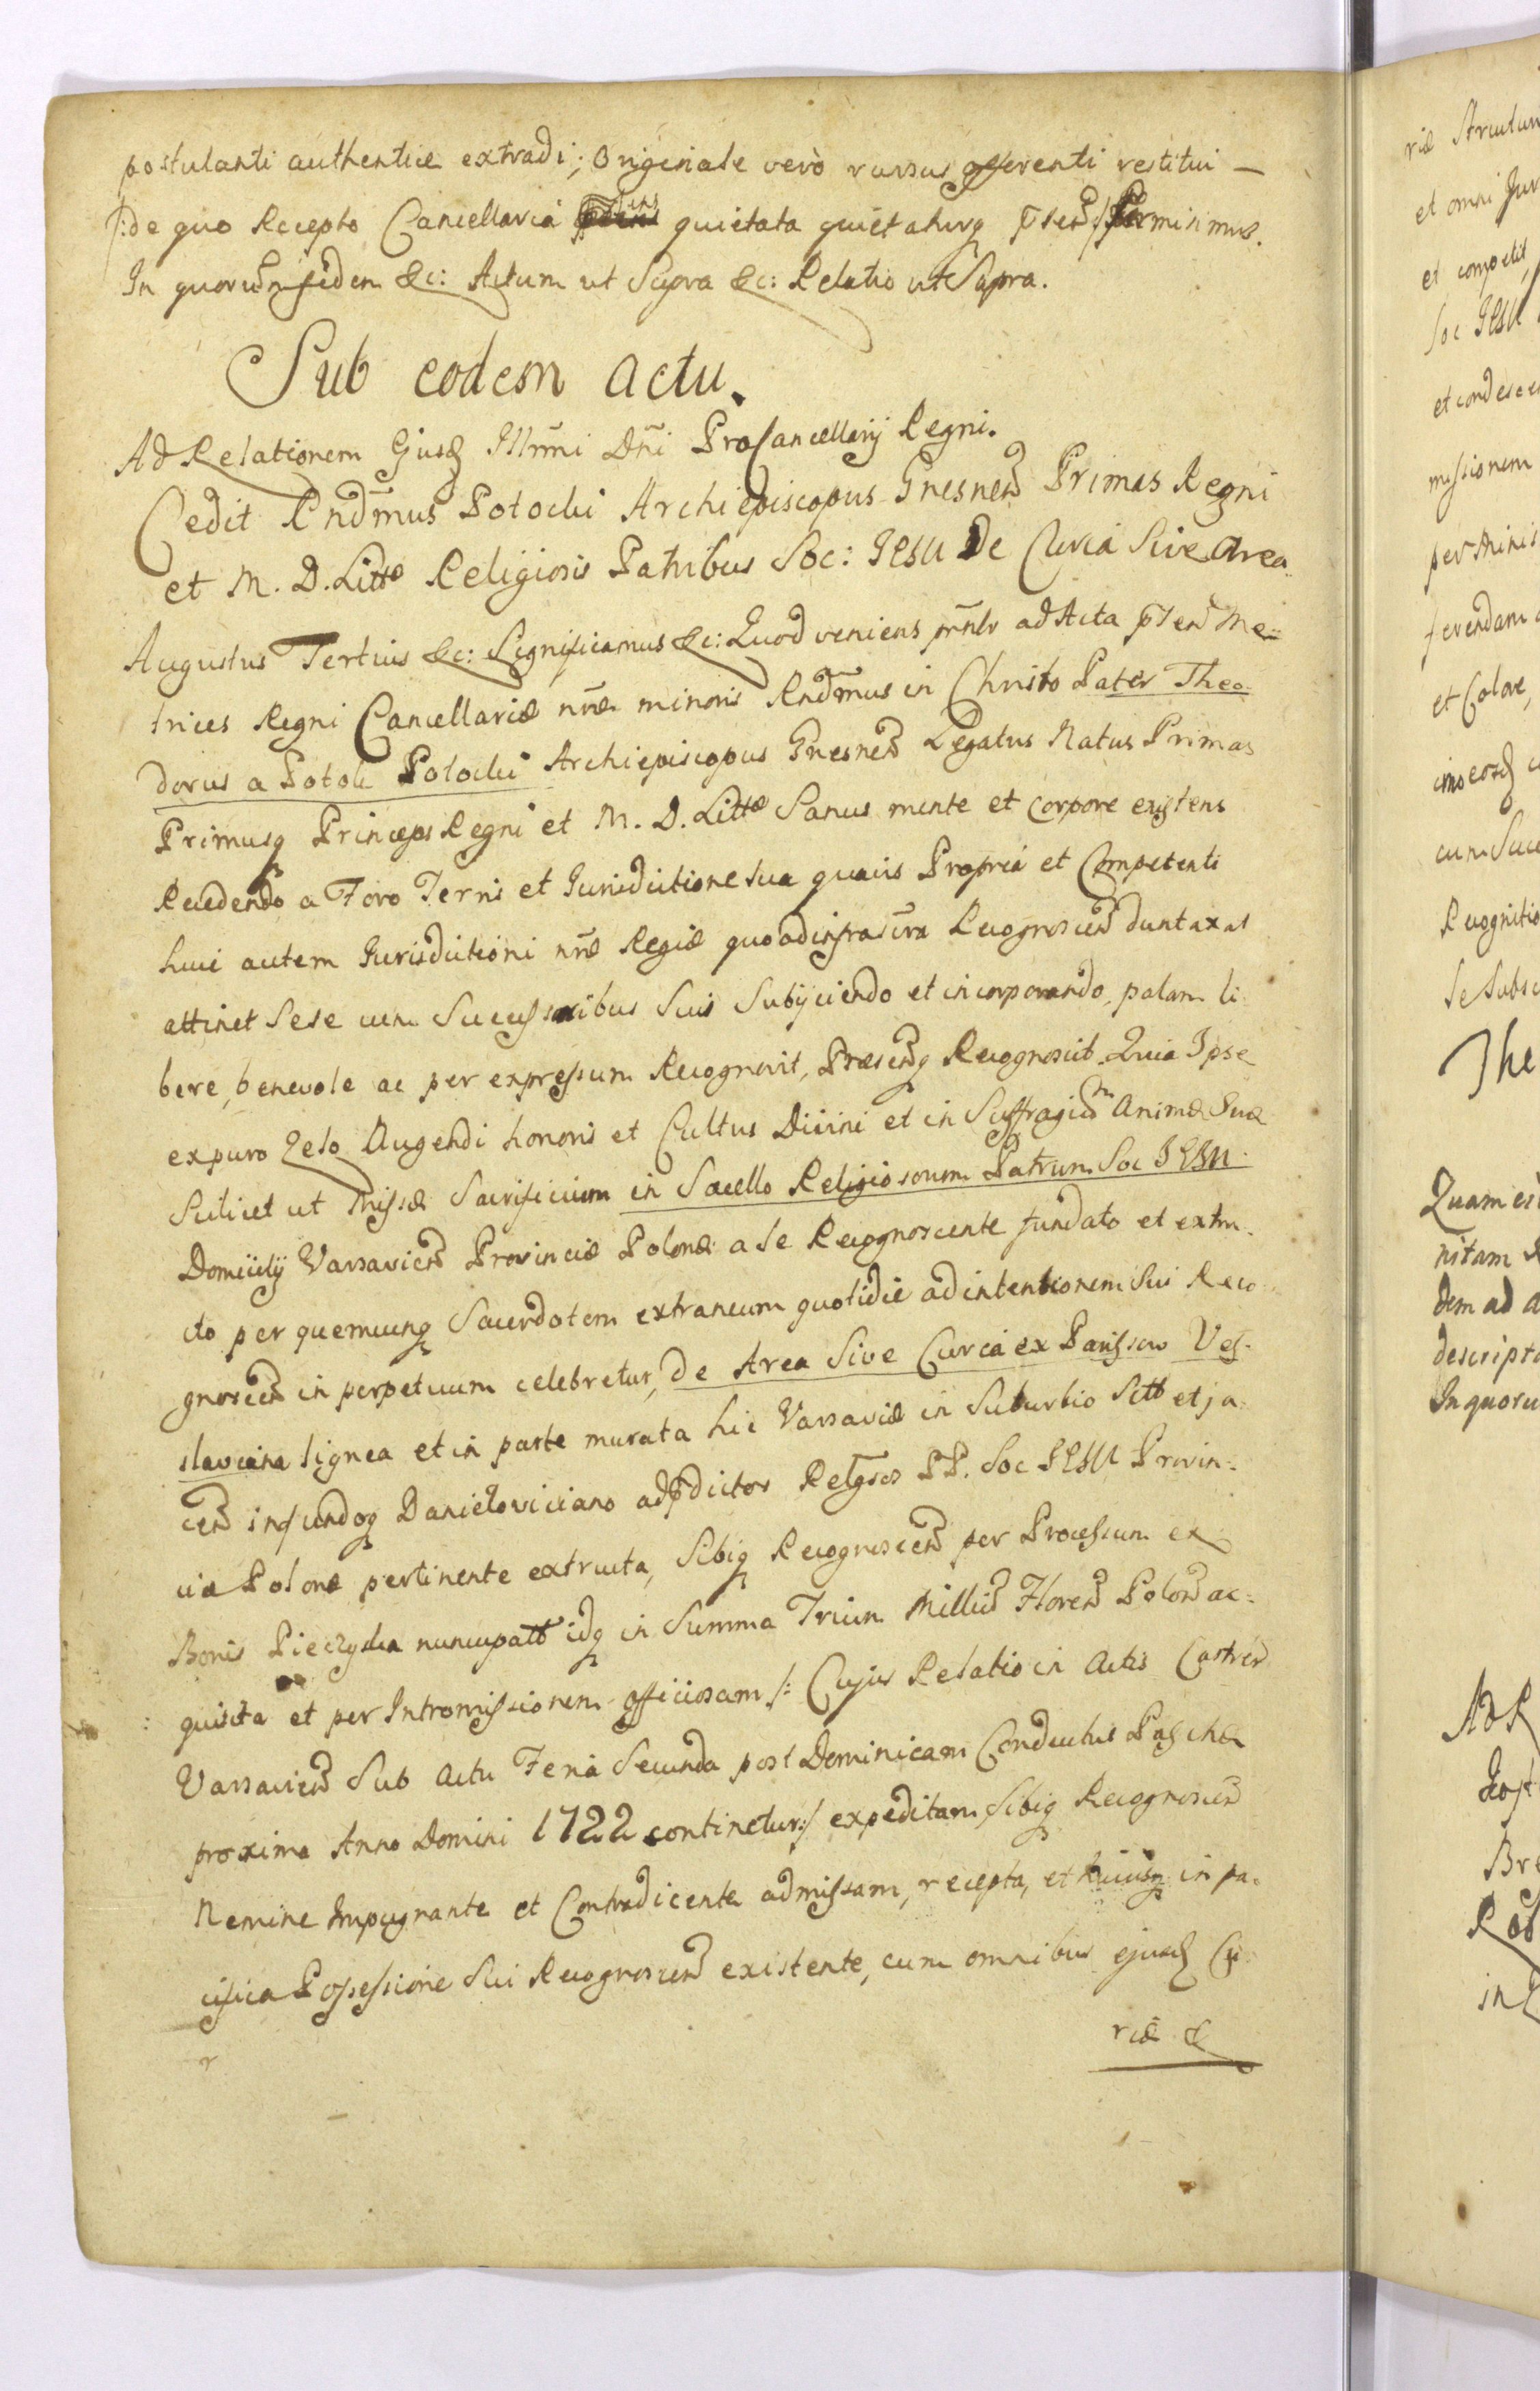 postulanti authentice extradi; Originale verò rursus offerenti restitui —
/:de quo Recepto Cancellaria quietata quietaturq̨ pñsen:/ Permisimus.
In quorum fidem &c: Actum ut Supra &c: Relatio ut Supra.
Sub eodem actu.
Ad Relationem Ejusd Illmi Dni ProCancellarij Regni.
Cedit Rndmus Potocki Archiepiscopus Gnesnen Primas Regni
et M. D. Littæ Religiosis Patribus Soc: JESU De Curia Sive Area
Augustus Tertius &c: Significamus &c: Quod veniens prnlr ad Acta pñsen Me=
trices Regni Cancellariæ nræ minoris Rndmus in Christo Pater Theo-
dorus a Potok Potocki Archiepiscopus Gnesnen Legatus Natus Primas
Primusq̨ Princeps Regni et M. D. Littæ Sanus mente et corpore existens
Recedendo a Foro Terris et Jurisdictione sua quavis Propria et Competenti
huic autem Jurisdictioni nræ Regiæ quoad infrascra Recognoscen duntaxat
attinet Sese cum Successoribus Suis Subijciendo et incorporando, palam li
bere, benevole ac per expressum Recognovit, Præsenq̨ Recognoscit. Quia Ipse
ex puro Zelo Augendi honoris et Cultus Divini et in Suffragium Animæ Suæ
Scilicet ut Missæ Sacrificium in Sacello Religiosorum Patrum Soc JESU.
Domicilij Varsavien Provinciæ Polonæ a Se Recognoscente fundato et extru-
cto per quemcunq̨ Sacerdotem extraneum quotidie ad intentionem Sui Reco
gnoscen in perpetuum celebretur, de Area Sive Curia ex Parissow Ves-
slaviana lignea et in parte murata hic Varsaviæ in Suburbio Sitt et ja
cen in fundoq̨ Danieloviciano ad pdictos Relgsos PP. Soc JESU Provin=
ciæ Polonæ pertinente extructa, Sibiq̨ Recognoscen per Processum ex
Bonis nuncupatt idq̨ in Summa Trium Millium Floren Polon ac=
quisita et per Intromissionem officiosam /: Cujus Relatio in Actis Castren
Varsavien Sub Actu Feria Secunda post Dominicam Conductus Paschæ
proxima Anno Domini 1722 continetur:/ expeditam Sibiq̨ Recognoscen
Nemine Impugnante et Contradicente admissam, recepta, et hucusq̨ in pa-
cifica Possessione Sui Recognoscen existente, cum omnibus ejusd Cu
riæ &